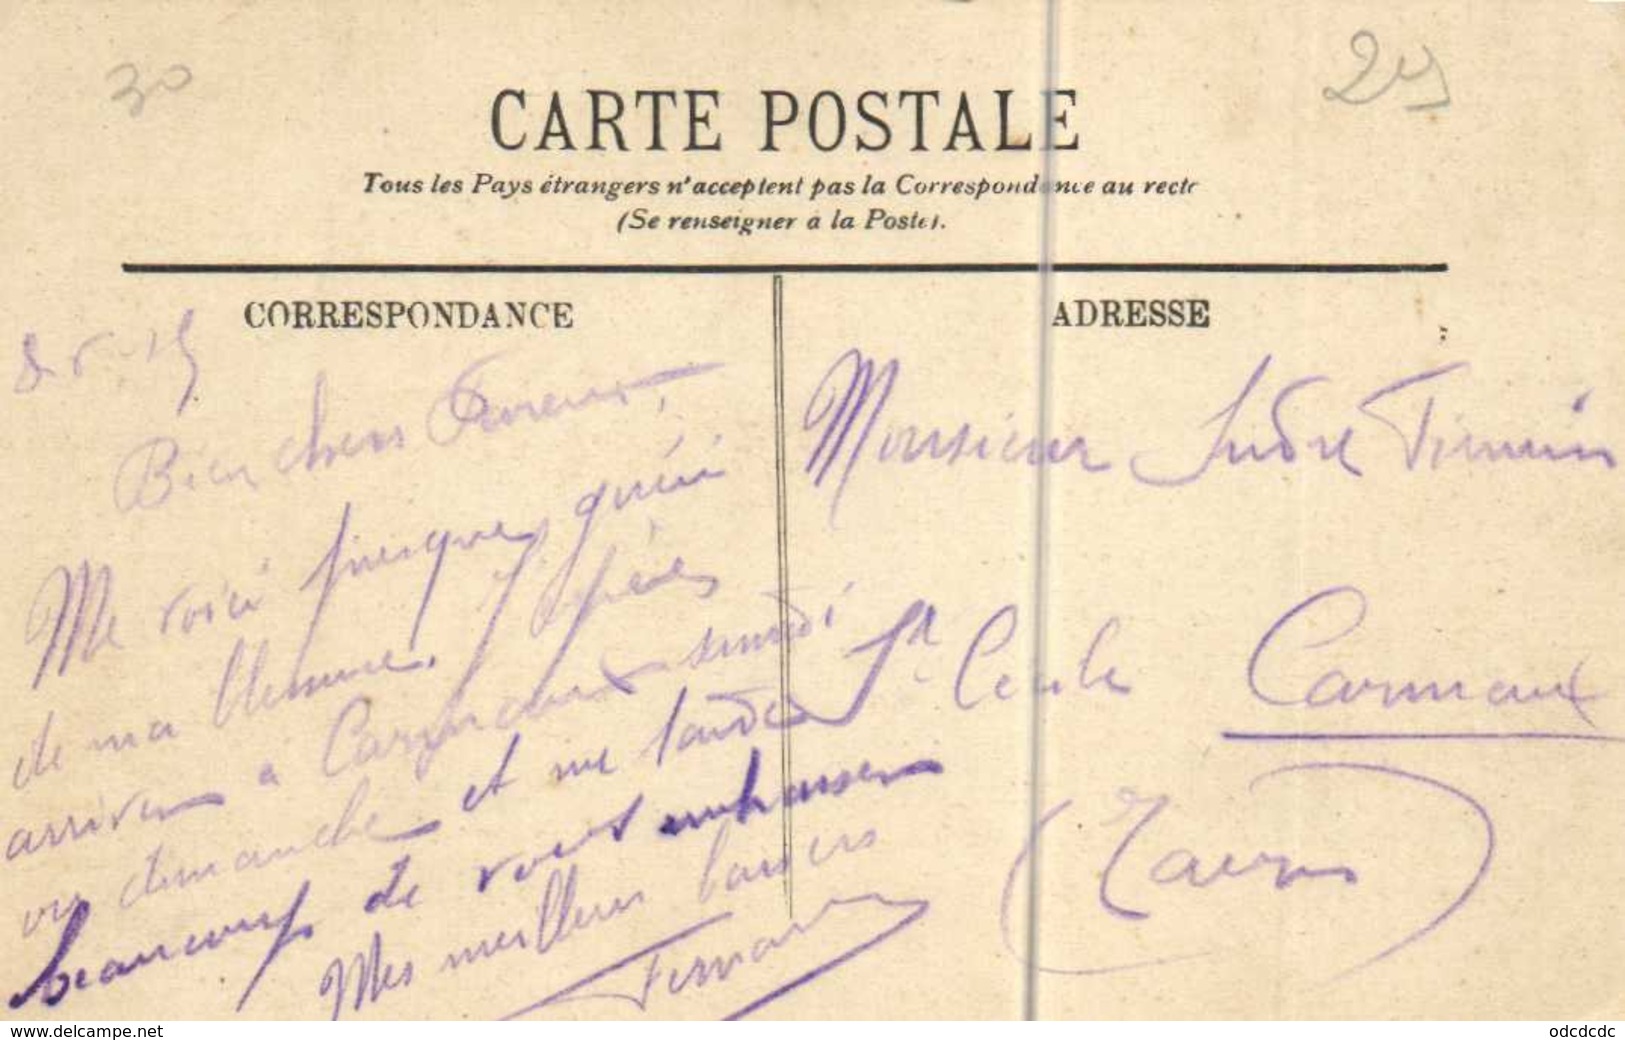 30
CARTE POSTALE
Tous les Pays étrangers n'acceptent pas la Correspondance au recto
(Se renseigner à la Poste).
CORRESPONDANCE
8-5-15
Bien chers Parents,
Me voici presque guéri
de ma blessure. J'espères
arriver a Carmaux samedi
ou dimanche et me tarde
beaucoup de vous embrasser
Mes meilleurs baisers
Fernand
ADRESSE
Monsieur Sudre Firmin
Ste Cécile Carmaux
(Tarn)
www.delcampe.net
odcdcdc